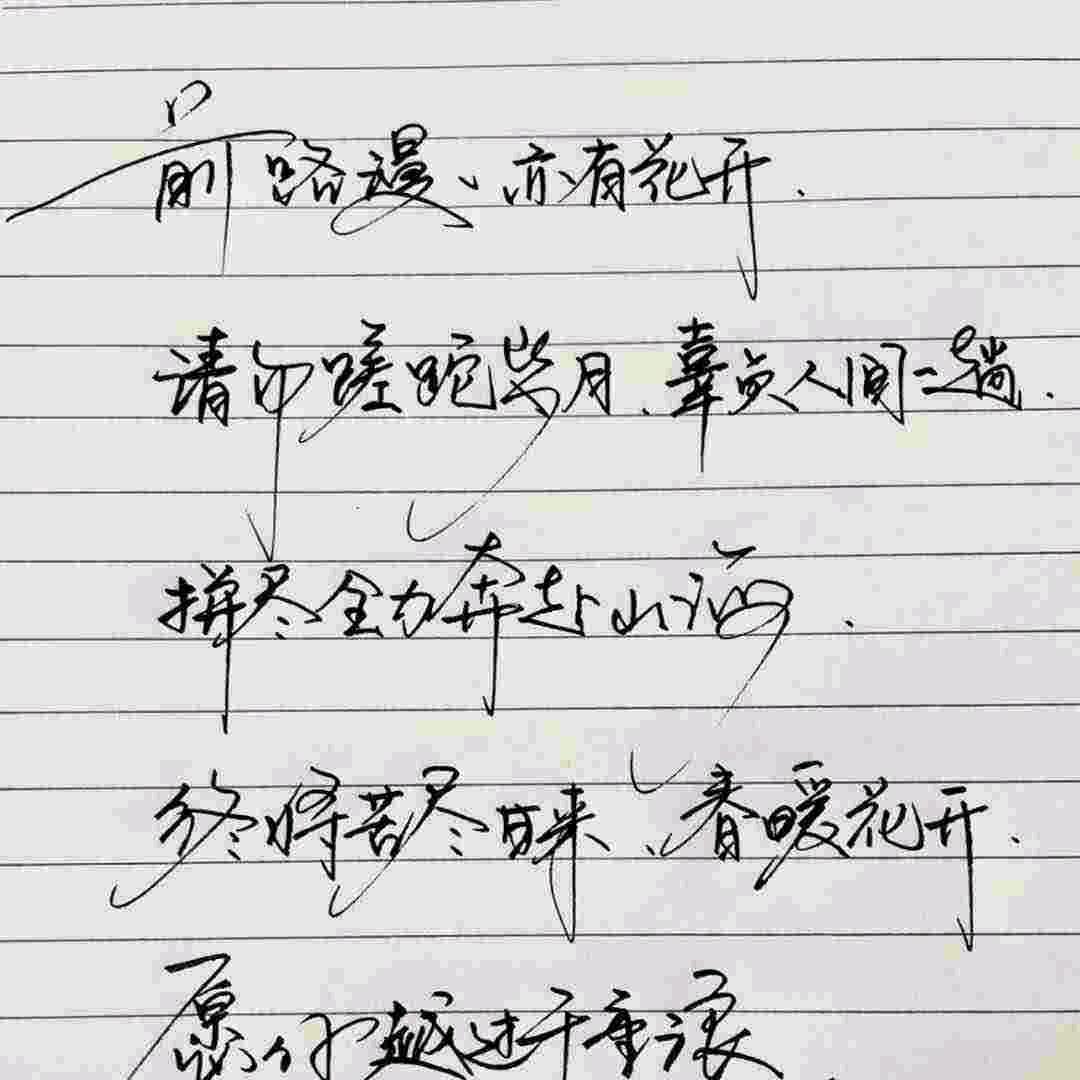 前路漫、亦有花开.
请勿蹉跎岁月.辜负人间一趟.
拼尽全力奔赴山海.
终将苦尽甘来、春暖花开.
愿你越过千重浪